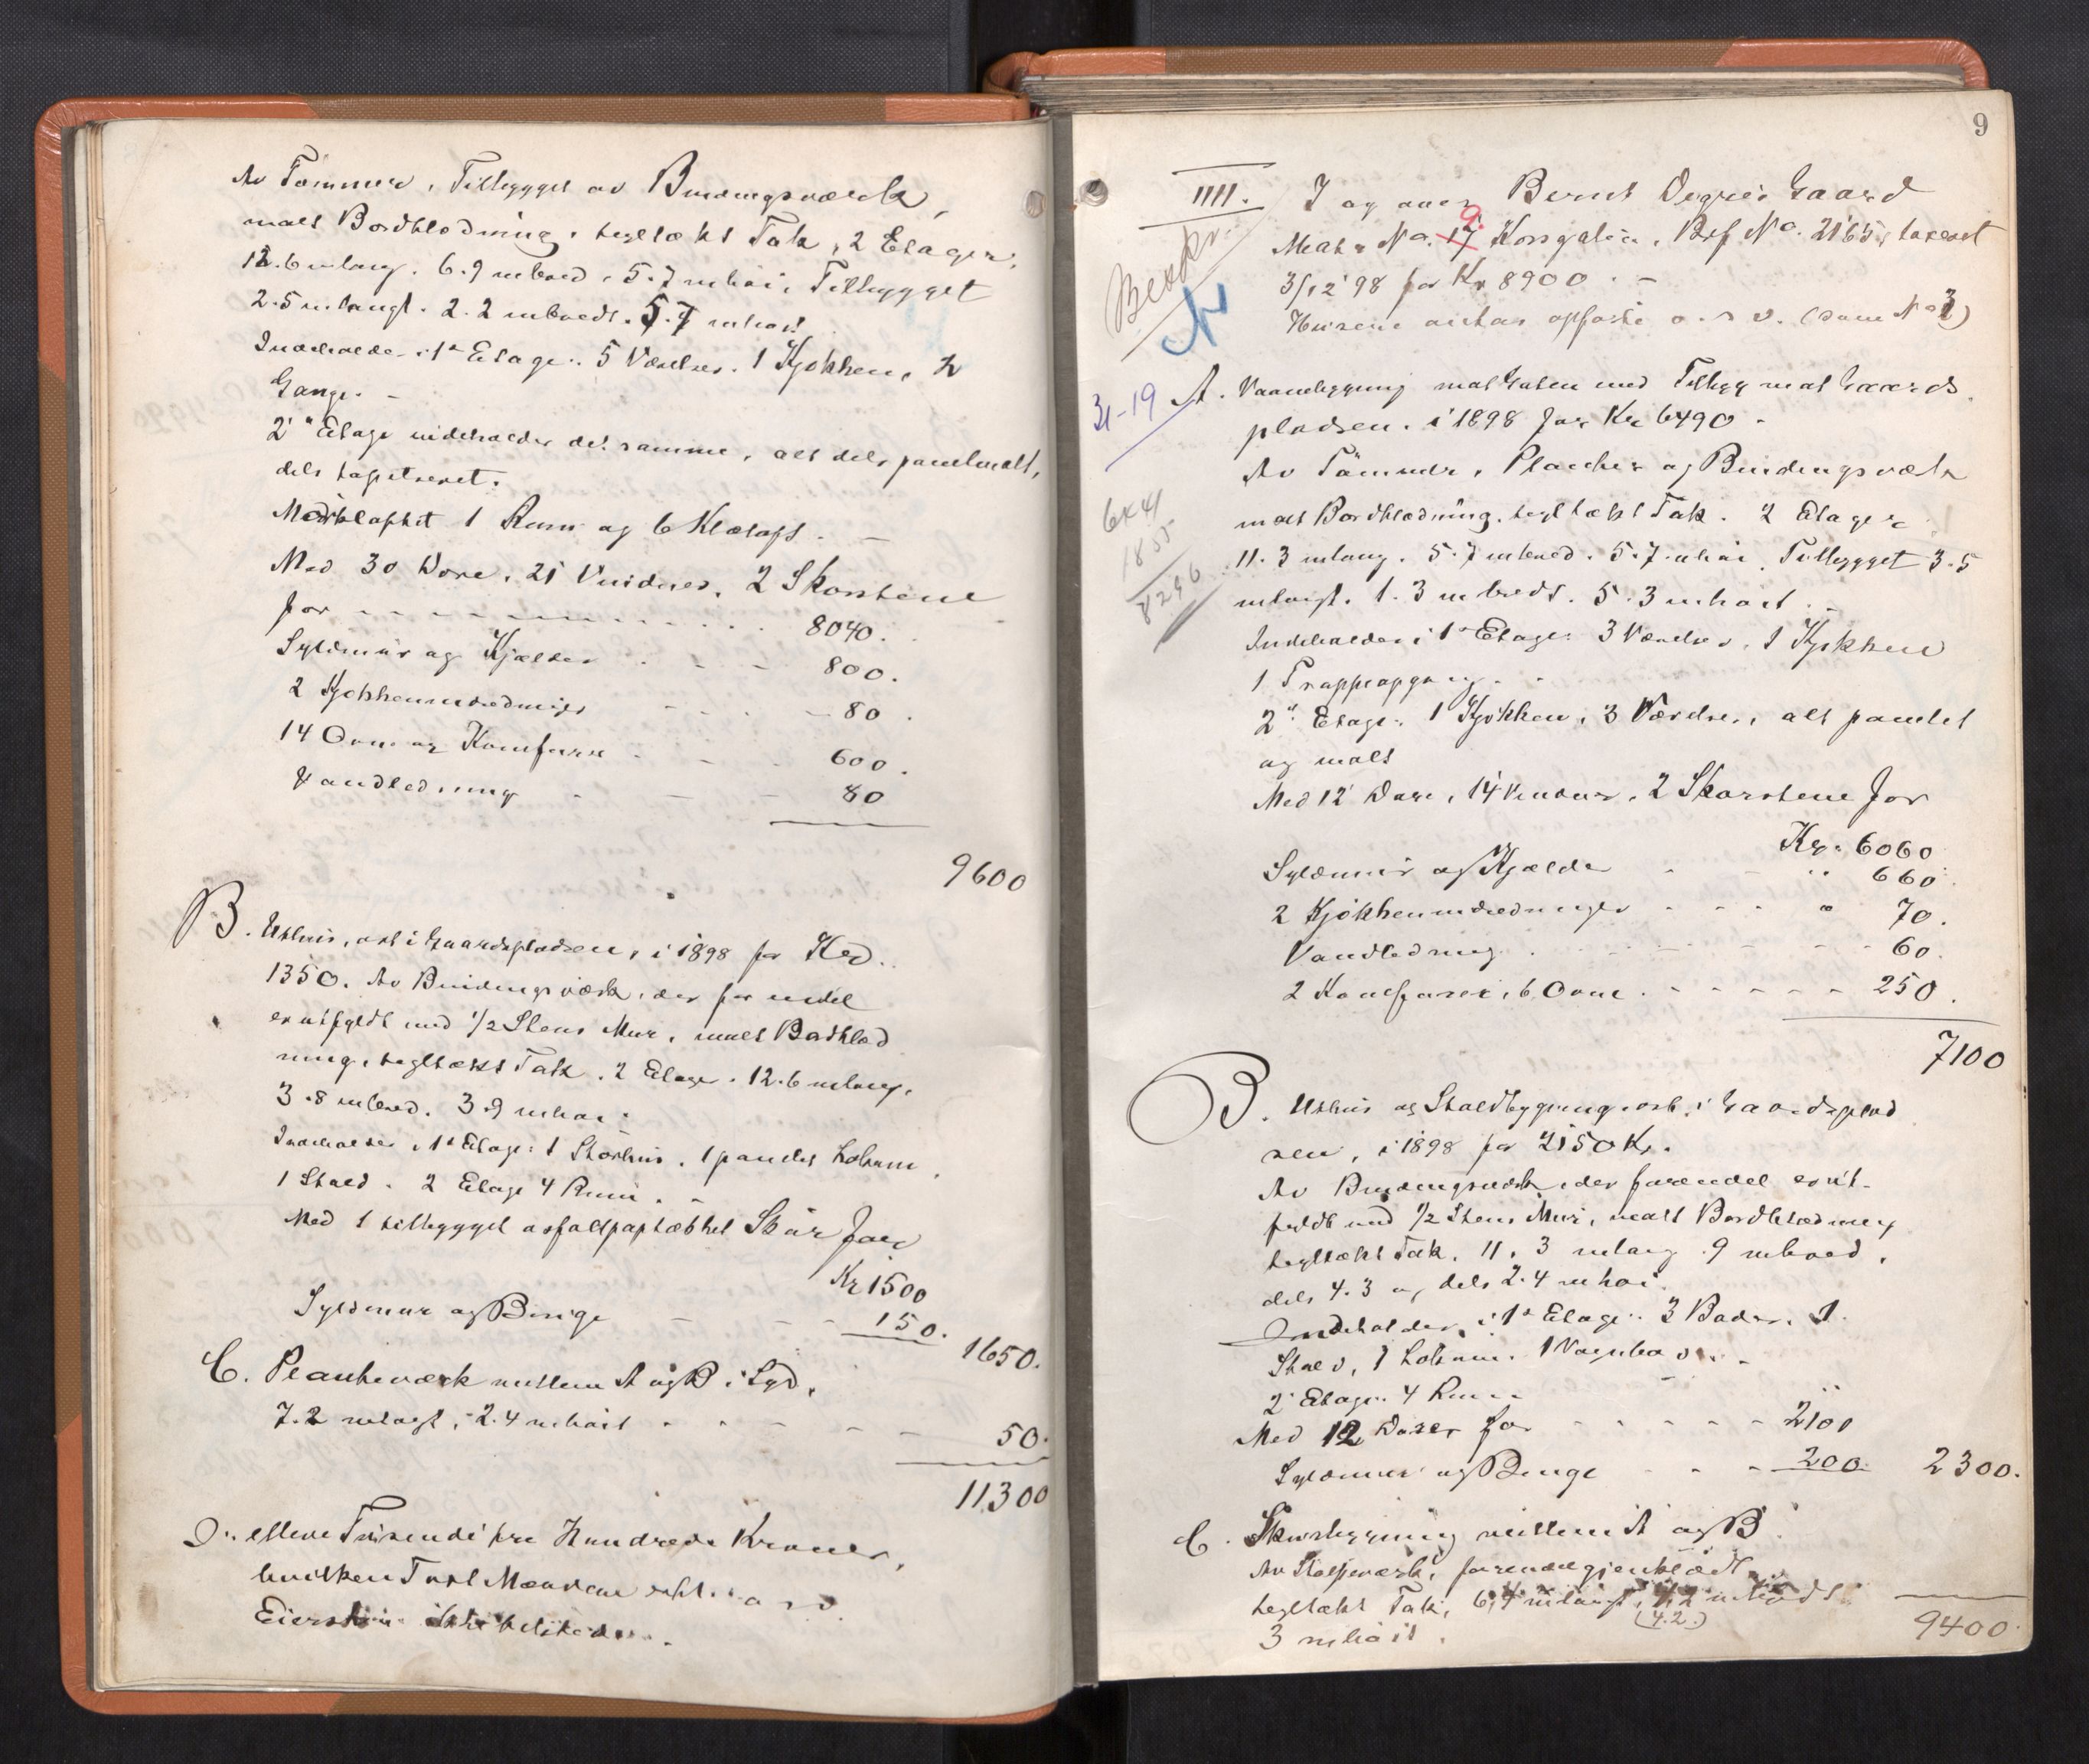 Av Tømmer, Tilbygget av Bindingsværk,
malt Bordklædning, tegltækt Tak, 2 Etager,
12.6 m lang. 6.9 m bred, 5.7 m høi, Tilbygget
2.5 m langt. 2.2 m bredt. 5.7 m høit
Indeholder i 1ste Etage: 5 Værelser. 1 Kjøkken, 2
Gange. -
2den Etage indeholder det samme, alt dels panelmalt,
dels tapetseret.
Mørkloftet 1 Rum og 6 Klæloft. -
Med 30 Døre, 21 Vinduer, 2 Skorstene
for - - - - 8040.
Syldmur og Kjælder - - - 800.
2 Kjøkkenindredninger - - - 80.
14 Ovne og Komfurer - - - 600.
Vandledning - - - 80
9600
B. Uthus, øst i Gaardspladsen, i 1898 for Kr.
1350. Av Bindingsværk, der for endel
er utfyldt med 1/2 Stens Mur, malt Bordklæd
ning, tegltækt Tak. 2 Etager. 12.6 m lang,
3.8 m bred. 3.9 m høi.
Indeholder i 1ste Etage: 1 Skorhus, 1 panelet Lokum,
1 Stald. 2 Etage 4 Rum. -
Med 1 tilbygget asfaltpaptækket Skur for
Kr 1500
Syldmur og Binge - - - 150. 1650.
C. Plankeværk mellem A og B i Syd,
7.2 m langt, 2.4 m høit - - - - - 50.
11300
Er elleve Tusende tre Hundrede Kroner,
hvilken Takst Mændene
Eieren ikke tilstede.
9
1111. Bernt Degnes Gaard
Matr. No. 17 9. Korsgaten, Brf No. 2165, taxeret
3/12 98 for Kr 8900. -
Husene antas opførte o. s. v. (som No 3)
Bevkr.
31-19
A. Vaanebygning mot Gaten med Tilbygg mot Gaards
pladsen. i 1898 for Kr 6490.
6x41
1855
8296
Av Tømmer, Planker og Bindingsværk
malt Bordklædning, tegltækt Tak. 2 Etager
11.3 m lang. 5.7 m bred. 5.7 m høi, Tilbygget 3.5
m langt. 1.3 m bredt. 5.3 m høit. -
Indeholder i 1ste Etage: 3 Værelser, 1 Kjøkken
1 Trappeopgang. -
2den Etage: 1 Kjøkken, 3 Værelser, alt panelet
og malt
Med 12 Døre, 14 Vinduer, 2 Skorstene for
Kr. 6060
Syldmur og Kjælder - - " 660.
2 Kjøkkenindredninger - - - " 70.
Vandledning - - - - 60.
2 Komfurer, 6 Ovne. - - - - - 250.
7100
B. Uthus og Staldbygning øst, i Gaardsplad
sen, i 1898 for 2150 Kr.
Av Bindingsværk, der forendel er ut-
fyldt med 1/2 Stens Mur, malt Bordklædning
tegltækt Tak. 11.3 m lang. 9 m bred,
dels 4.3 og dels 2.4 m høi.
Indeholder i 1ste Etage: 3 Boder. 1
Stald, 1 Lokum. 1 Vognbod. -
2. Etage: 4 Rum
Med 12 Døre for - - - - - 2100
Syldmur og Binge - - - 200. 2300.
C. Skurbygning mellem A og B.
Av Stolpeværk, forendel gjenklædt,
tegltækt Tak, 6,4 m langt, 4,2 m bredt
(4.2.)
3 m høit.
9400.